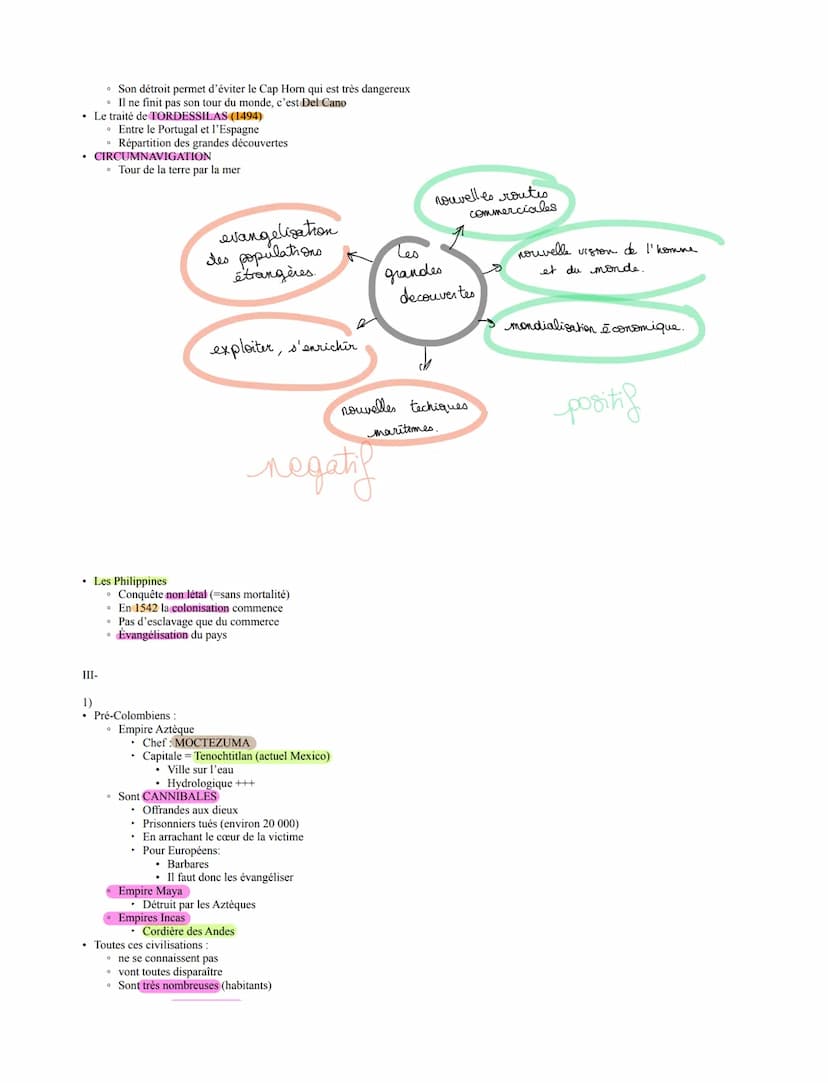 Son détroit permet d'éviter le Cap Horn qui est très dangereux
Il ne finit pas son tour du monde, c'est Del Cano
Le traité de TORDESSILAS (1494)
Entre le Portugal et l'Espagne
Répartition des grandes découvertes
CIRCUMNAVIGATION
Tour de la terre par la mer
nouvelles routes
commerciales
evangelization
des populations
étrangères.
Les
grandes
decouvertes
nouvelle vision de l'homme
et du monde.
mondialisation économique.
exploiter, s'enrichir
nouvelles techiques
maritimes.
positif
negatif
Les Philippines
Conquête non létal (=sans mortalité)
En 1542 la colonisation commence
Pas d'esclavage que du commerce
Évangélisation du pays
III-
1)
Pré-Colombiens :
Empire Aztèque
Chef : MOCTEZUMA
Capitale = Tenochtitlan (actuel Mexico)
Ville sur l'eau
Hydrologique +++
Sont CANNIBALES
Offrandes aux dieux
Prisonniers tués (environ 20 000)
En arrachant le cœur de la victime
Pour Européens:
Barbares
Il faut donc les évangéliser
Empire Maya
Détruit par les Aztèques
Empires Incas
Cordière des Andes
Toutes ces civilisations :
ne se connaissent pas
vont toutes disparaître
Sont très nombreuses (habitants)